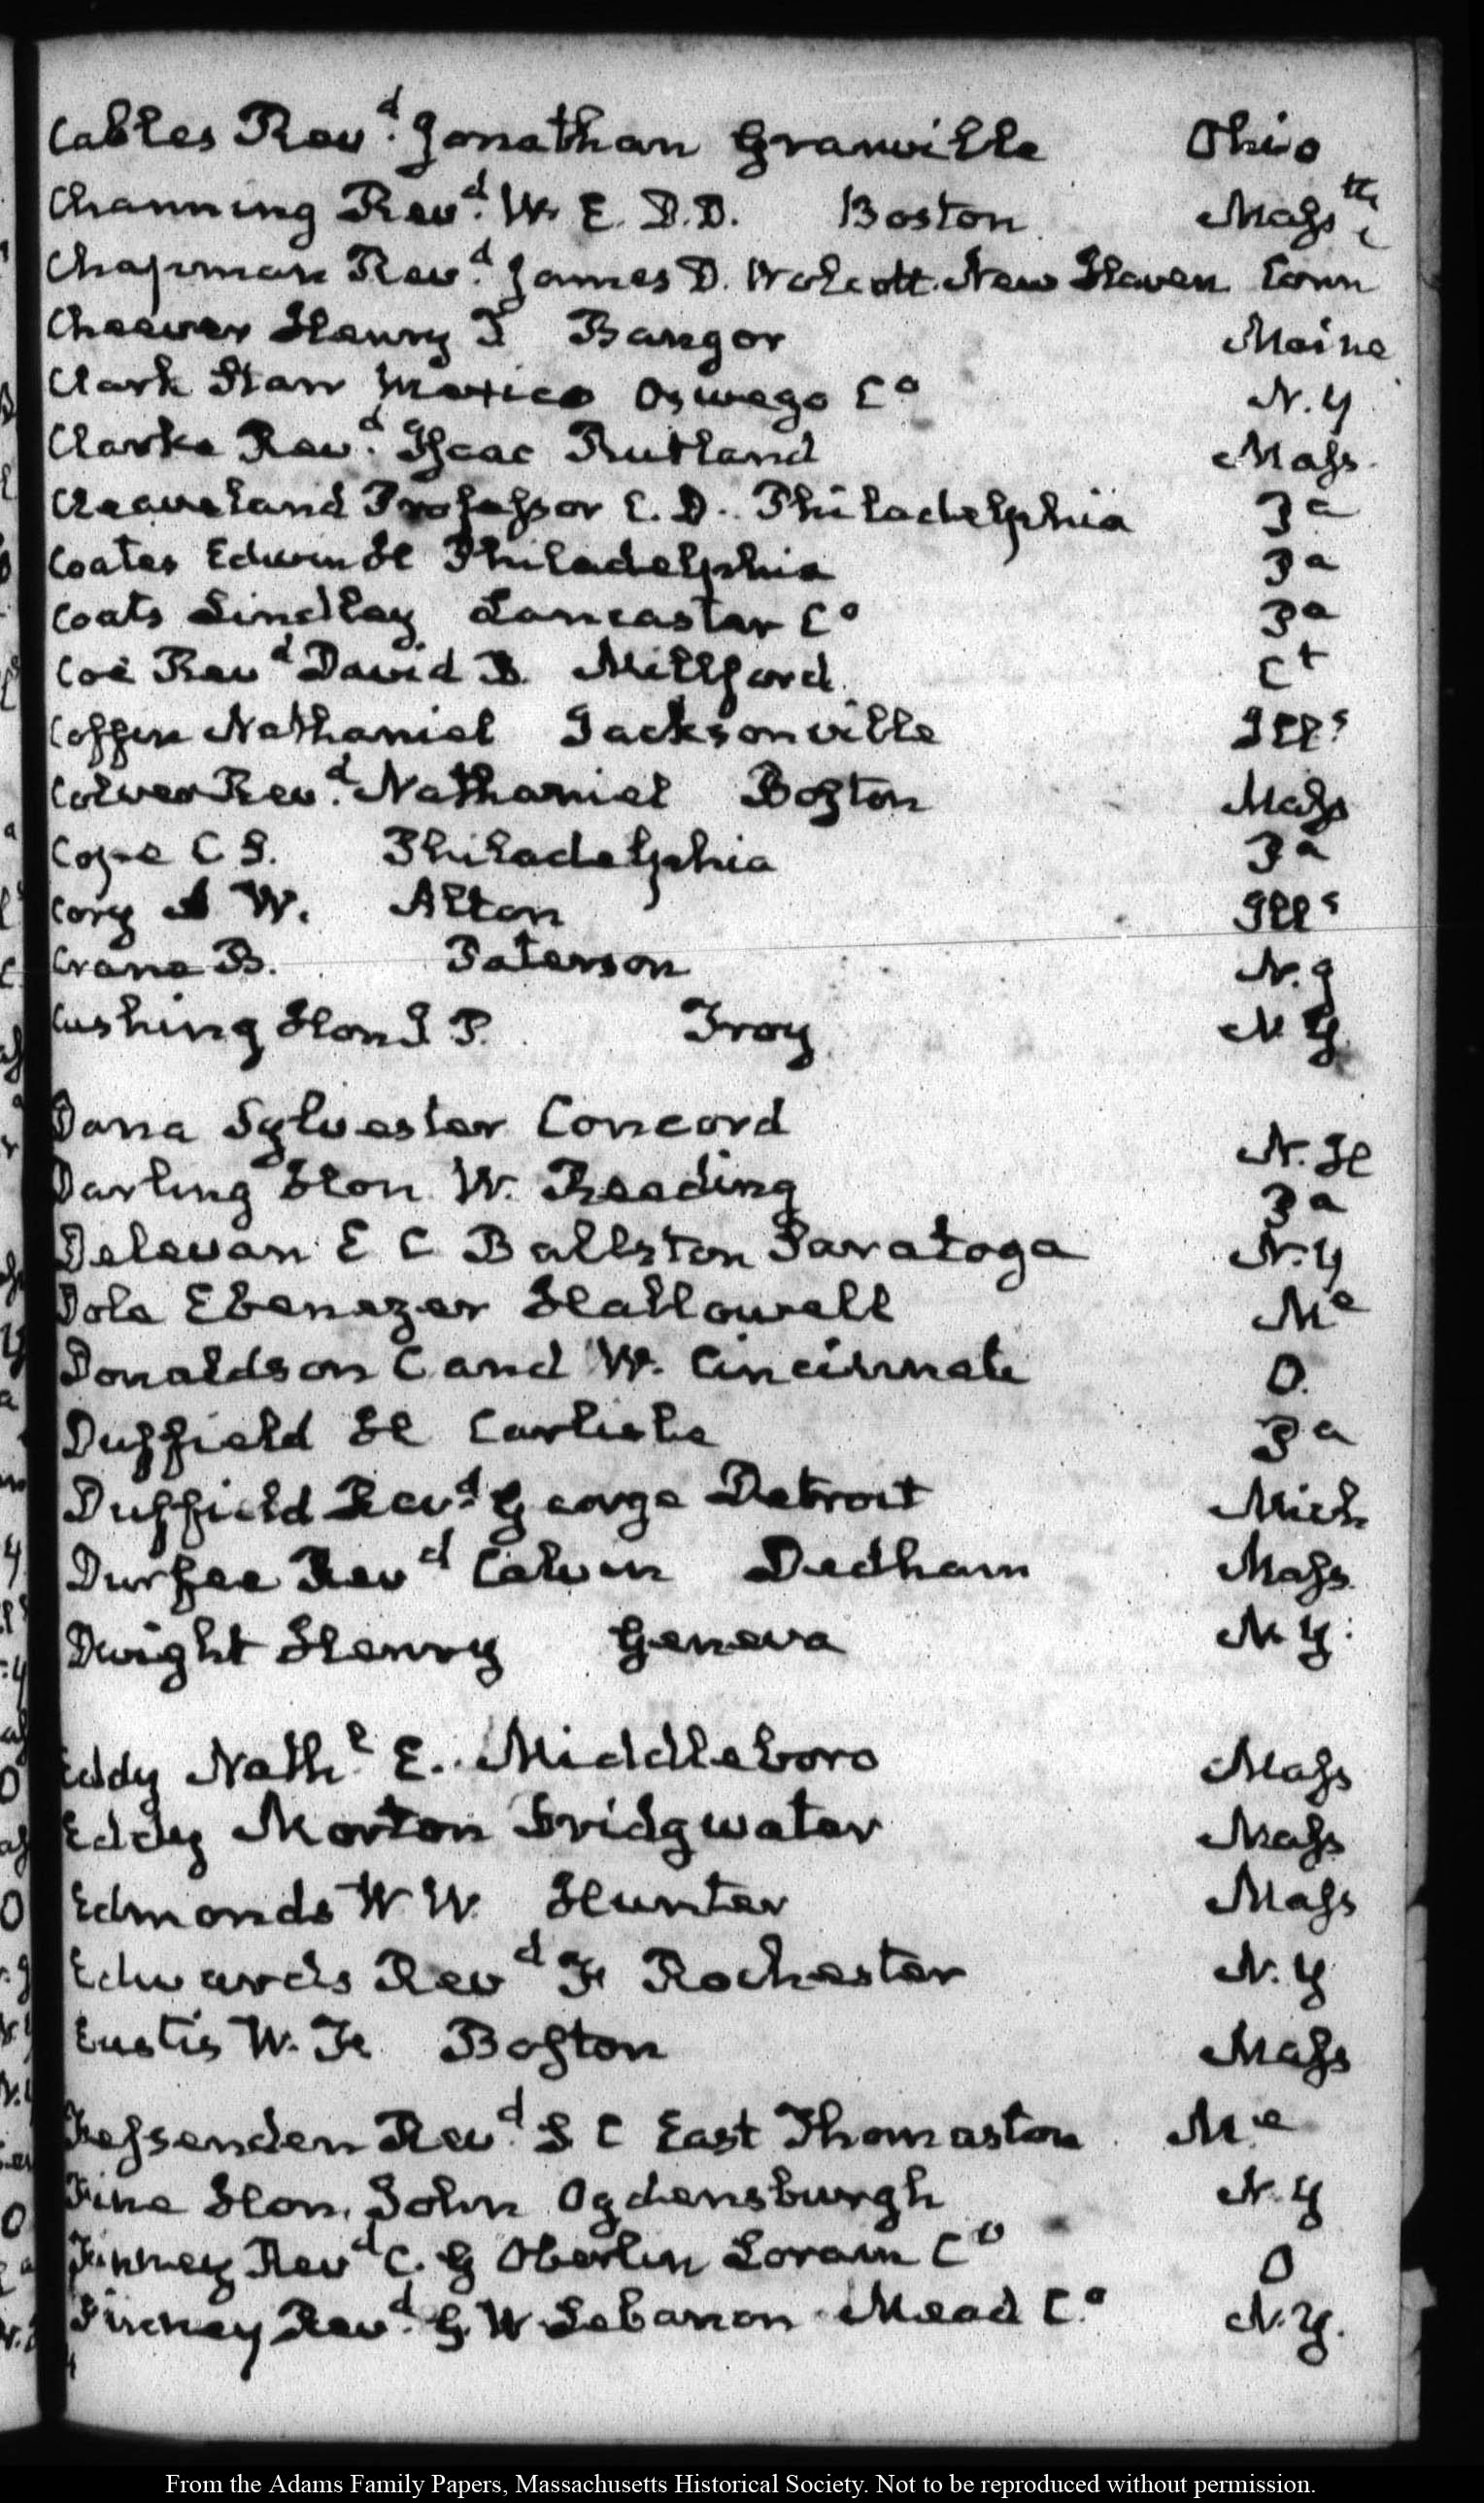 Cables Revd. Jonathan Granville Ohio
Channing Revd. W. E. D.D. Boston Massts
Chapman Revd. James D. Wolcott. New Haven Conn
Cheever Henry T Bangor Maine
Clark Starr Mexico Oswego Co N.Y
Clarke Revd. Isaac Rutland Mass.
Cleaveland Professor C. D. Philadelphia Pa
Coates Edwin H Philadelphia Pa
Coats Lindley Lancaster Co Pa
Coe Revd David B. Millford Ct
Coffin Nathaniel Jacksonville Ills
Colver Revd. Nathaniel Boston Mass
Cope C S. Philadelphia Pa
Cory A W. Alton Ills
Crane B. Paterson N.J
Cushing Hon J P. Troy N Y
Dana Sylvester Concord N. H
Darling Hon W. Reading Pa
Delevan E C Ballston Saratoga N.Y
Dole Ebenezer Hallowell Me
Donaldson C and W. Cincinnati O.
Duffield H Carlisle Pa
Duffield Revd. George Detroit Mich
Durfee Revd Calvin Dedham Mass
Dwight Henry Geneva N Y.
Eddy Nathl E. Middleboro Mass
Eddy Morton Bridgwater Mass
Edmonds W W. Hunter Mass
Edwards Revd Rochester N. Y
Eustis W. Boston Mass
Fessenden Revd. S C East Thomaston Me
Fine Hon. John Ogdensburgh N. Y
Finney Revd C. G Oberlin Lorain Co O
Finney Revd. G. W Lebanon Mead Co N.Y.
From the Adams Family Papers, Massachusetts Historical Society. Not to be reproduced without permission.